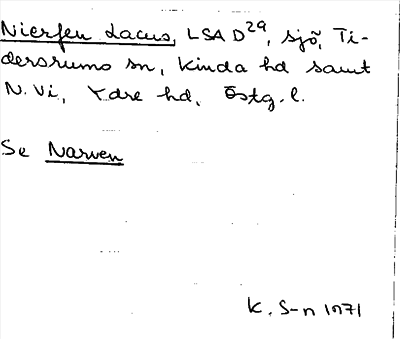 Nierfen Lacus, LSA D29, sjö, Ti-
dersrums sn, Kinda hd samt
N. Vi, Ydre hd, Östg. l.
Se Narven
K. S-n 1971